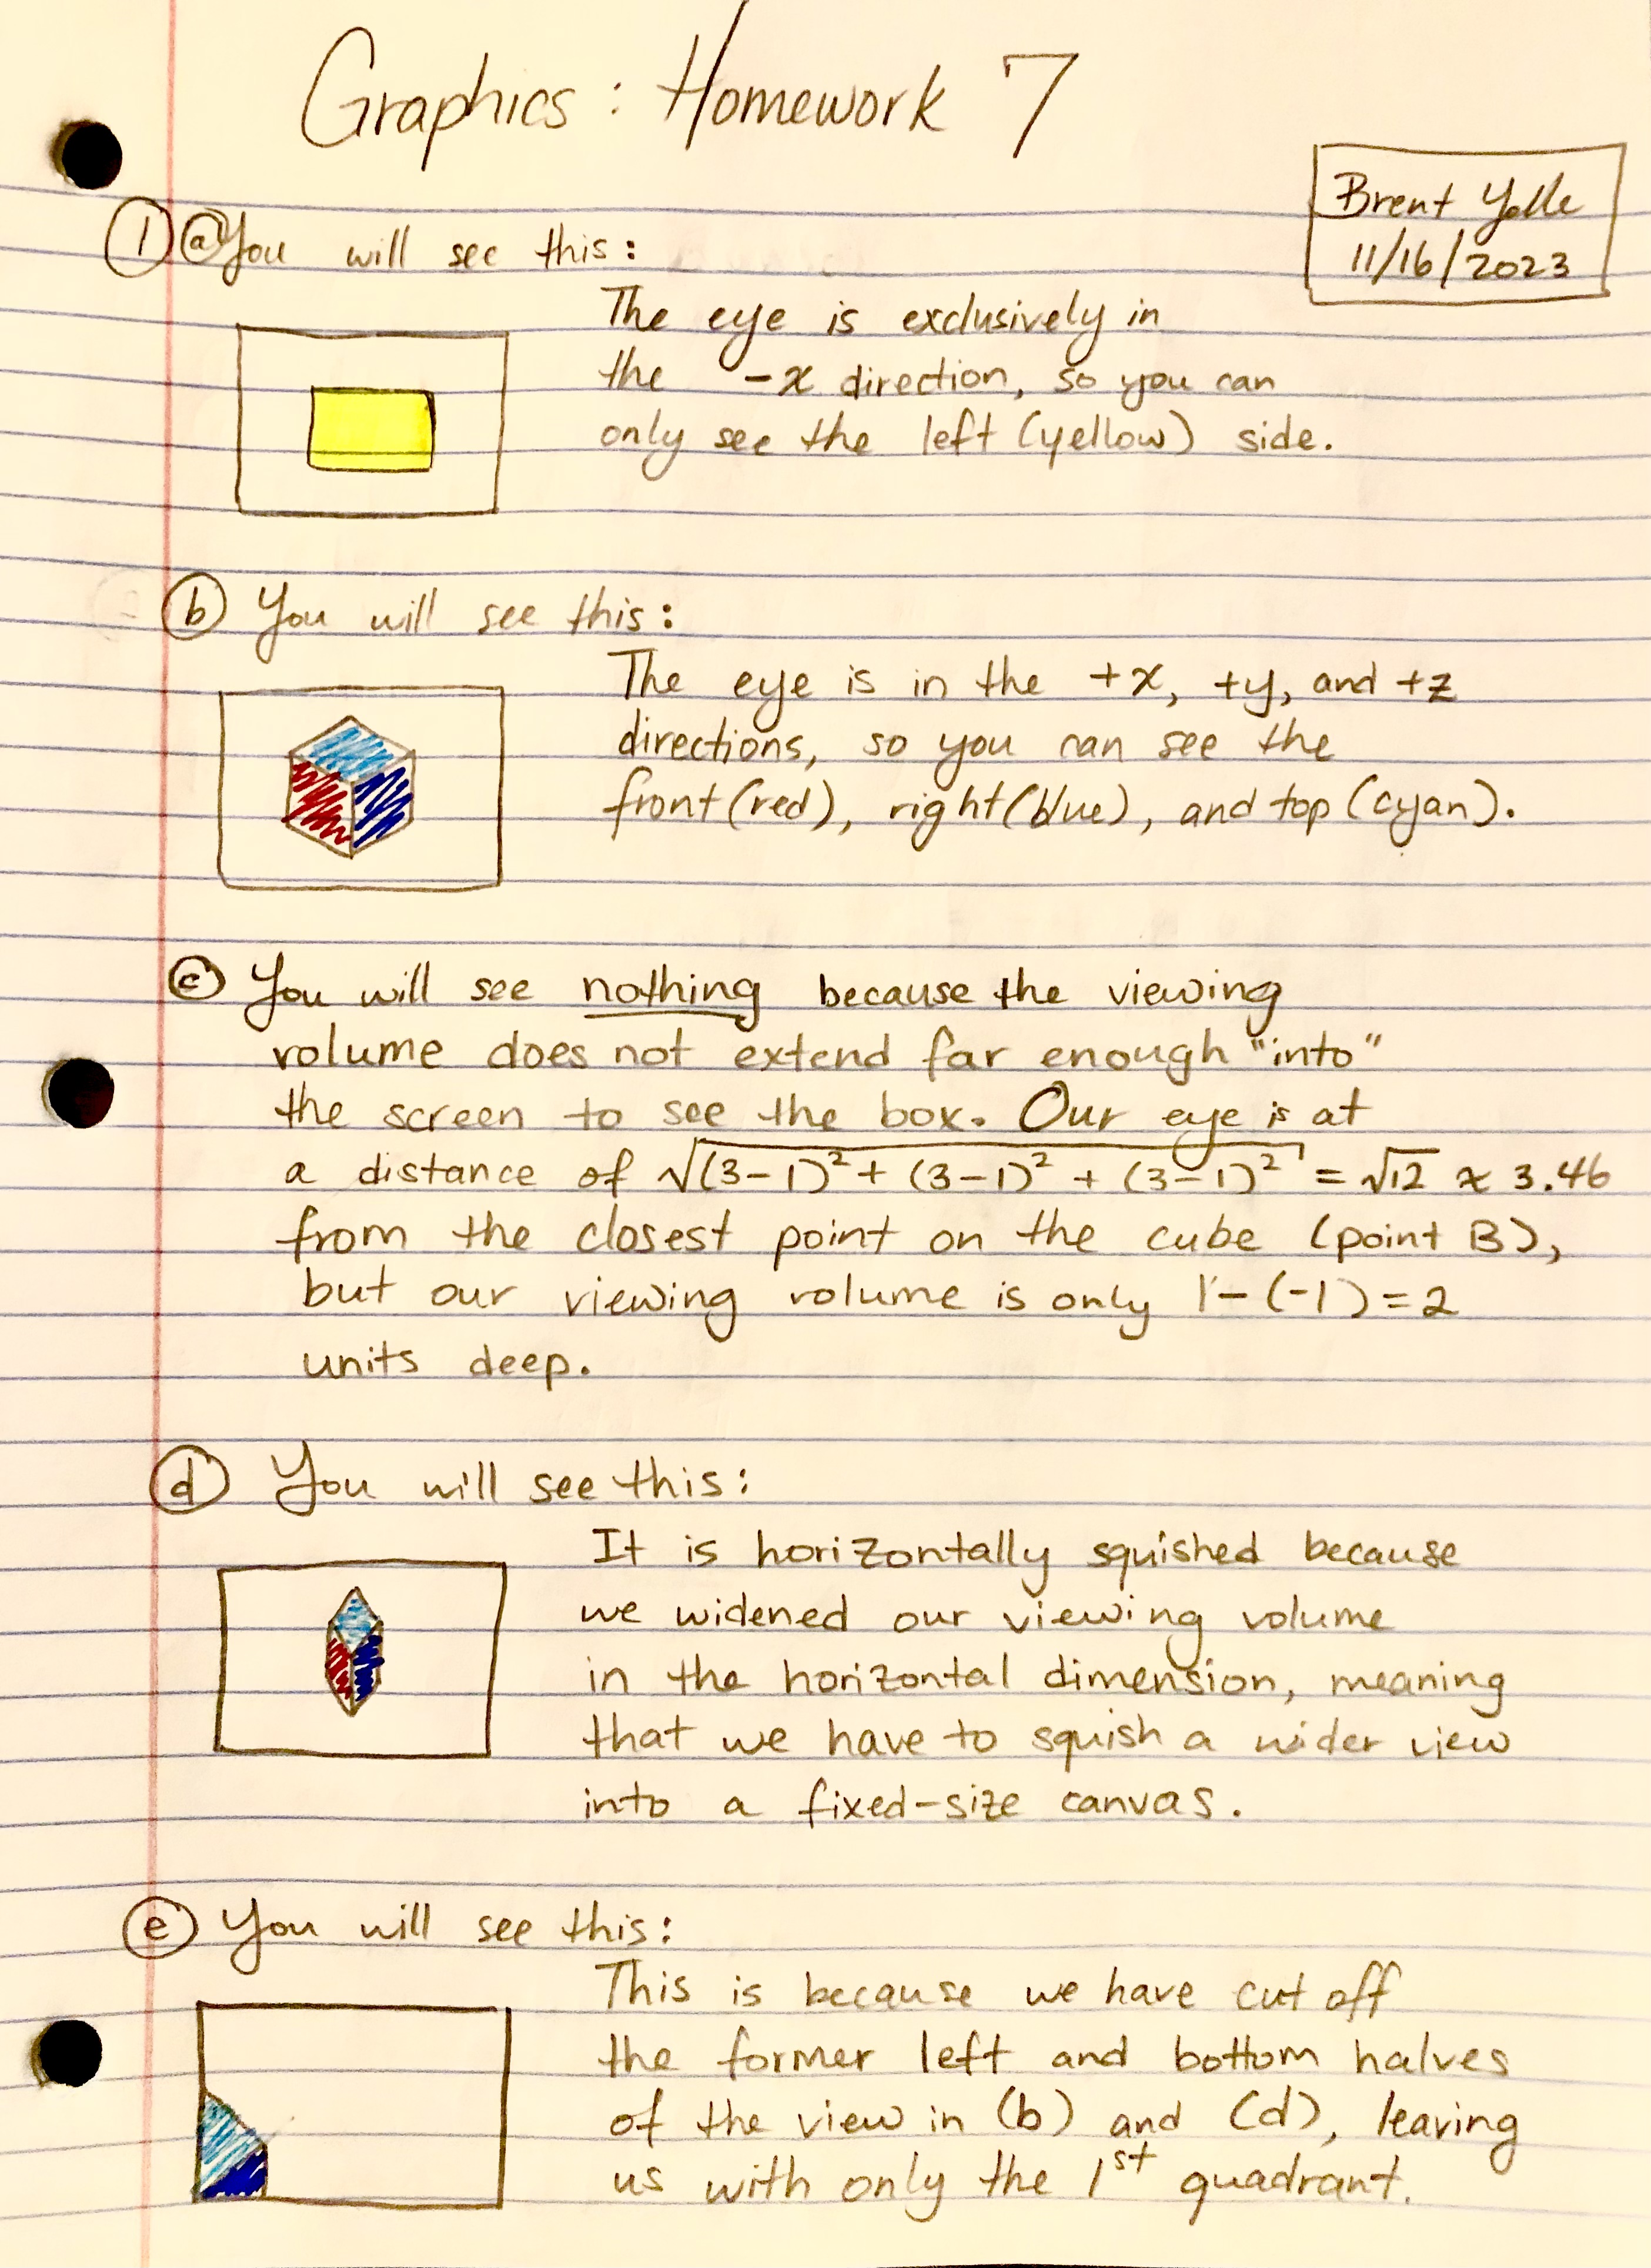 Graphics: Homework 7
Brent Yolle
11/16/2023
① ⓐ You will see this:
The eye is exclusively in
the -x direction, so you can
only see the left (yellow) side.
ⓑ You will see this:
The eye is in the +x, +y, and +z
directions, so you can see the
front (red), right (blue), and top (cyan).
ⓒ You will see nothing because the viewing
volume does not extend far enough "into"
the screen to see the box. Our eye is at
a distance of √((3-1)² + (3-1)² + (3-1)²) = √12 ≈ 3.46
from the closest point on the cube (point B),
but our viewing volume is only 1-(-1)=2
units deep.
ⓓ You will see this:
It is horizontally squished because
we widened our viewing volume
in the horizontal dimension, meaning
that we have to squish a wider view
into a fixed-size canvas.
ⓔ You will see this:
This is because we have cut off
the former left and bottom halves
of the view in (b) and (d), leaving
us with only the 1st quadrant.